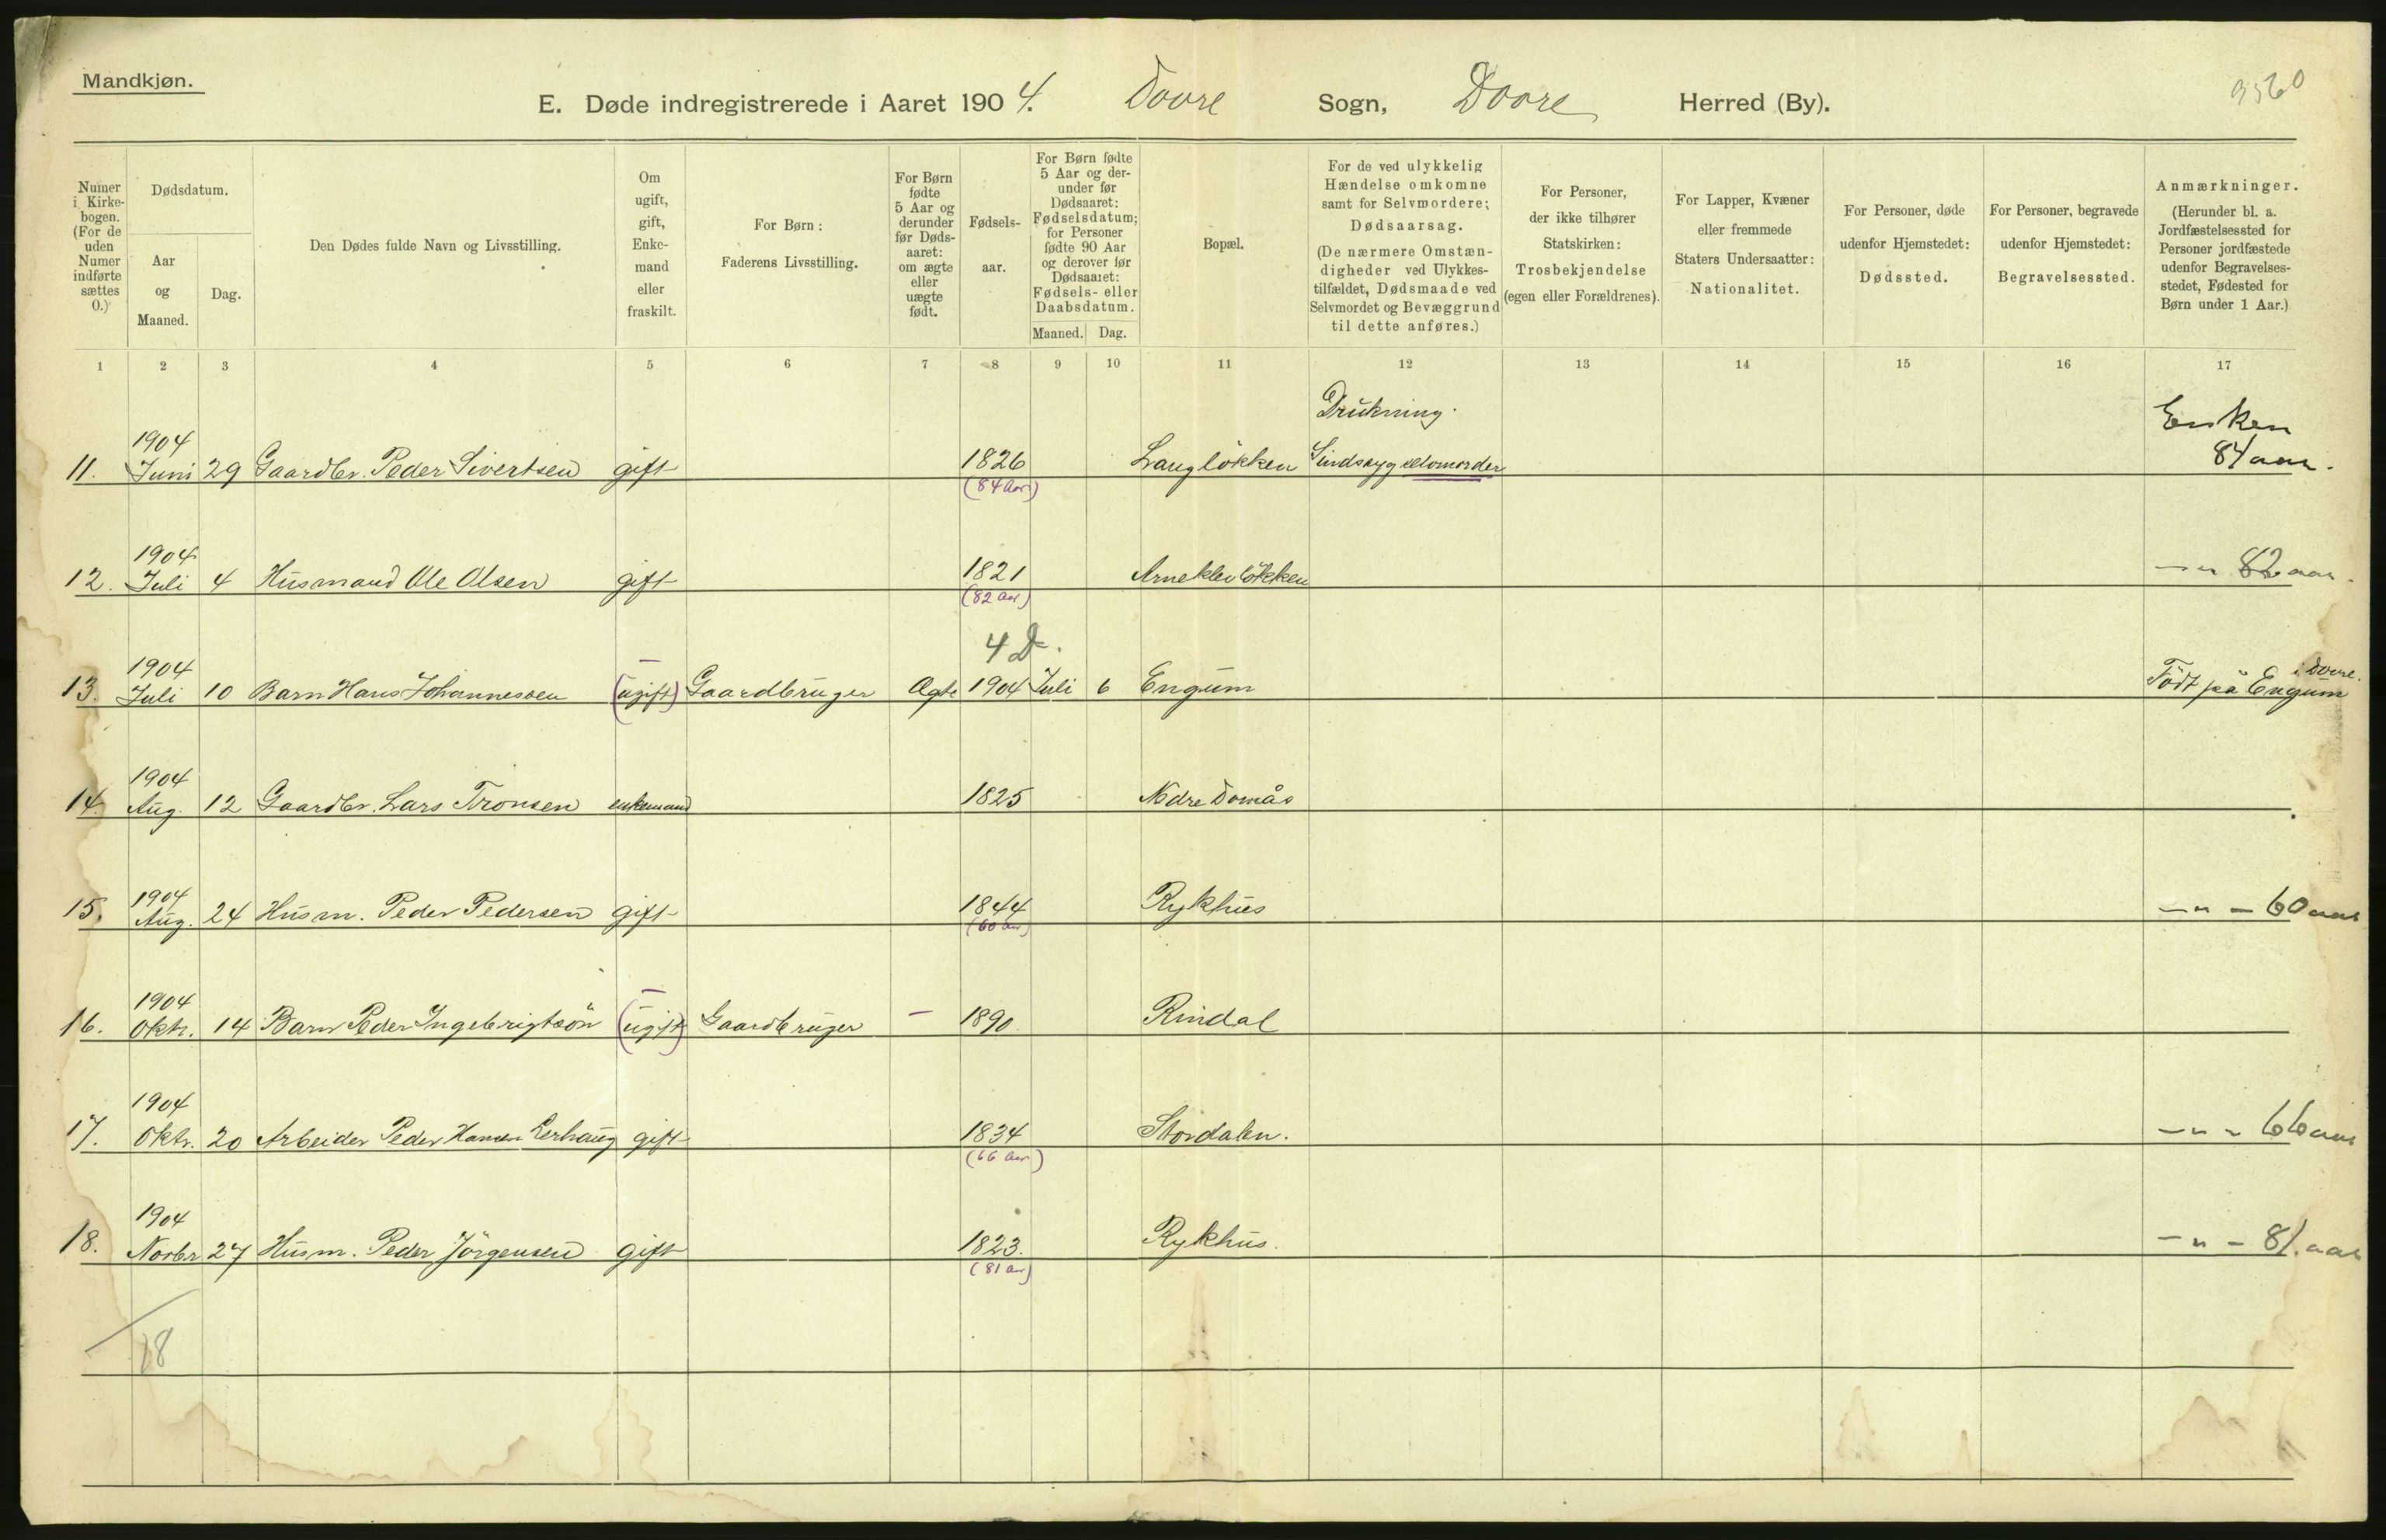 Mandkjøn.
E. Døde indregistrerede i Aaret 1904. Dovre Sogn, Dovre Herred (By).
9560
Numer i Kirke-bogen. (For de uden Numer indførte sættes 0.)
Dødsdatum.
Aar og Maaned.
Dag.
Den Dødes fulde Navn og Livsstilling.
Om ugift, gift, Enke-mand eller fraskilt.
For Børn: Faderens Livsstilling.
For Børn fødte 5 Aar og derunder før Døds-aaret: om ægte eller uægte født.
Fødsels-aar.
For Børn fødte 5 Aar og der-under før Dødsaaret: Fødselsdatum; for Personer fødte 90 Aar og derover før Dødsaaret: Fødsels- eller Daabsdatum.
Maaned. Dag.
Bopæl.
For de ved ulykkelig Hændelse omkomne samt for Selvmordere; Dødsaarsag. (De nærmere Omstæn-digheder ved Ulykkes-tilfældet, Dødsmaade ved Selvmordet og Bevæggrund til dette anføres.)
For Personer, der ikke tilhører Statskirken: Trosbekjendelse (egen eller Forældrenes).
For Lapper, Kvæner eller fremmede Staters Undersaatter: Nationalitet.
For Personer, døde udenfor Hjemstedet: Dødssted.
For Personer, begravede udenfor Hjemstedet: Begravelsessted.
Anmærkninger. (Herunder bl. a. Jordfæstelsessted for Personer jordfæstede udenfor Begravelses-stedet, Fødested for Børn under 1 Aar.)
1 2 3 4 5 6 7 8 9 10 11 12 13 14 15 16 17
Drukning. Enken
11. 1904 Juni 29 Gaardbr. Peder Sivertsen gift 1826 Langløkken Sindssyg selvmorder 84 aar.
(84 Aar)
12. 1904 Juli 4 Husmand Ole Olsen gift 1821 Arneklevløkken —"— 82 aar.
(82 Aar)
4 D. i Dovre.
13. 1904 Juli 10 Barn Hans Johannessen (ugift) Gaardbruger Ægte 1904 Juli 6 Engum Født på Engum
14. 1904 Aug. 12 Gaardbr. Lars Tronsen enkemand 1825 Nedre Domås
15. 1904 Aug. 24 Husm. Peder Pedersen gift 1844 Rykhus —"— 60 aar
(60 Aar)
16. 1904 Oktr. 14 Barn Peder Ingebrigtsøn (ugift) Gaardbruger — 1890 Rindal
17. 1904 Oktr. 20 Arbeider Peder Hansen Lerhaug gift 1834 Stordalen. —"— 66 aar
(66 Aar)
18. 1904 Novbr 27 Husm. Peder Jörgensen gift 1823. Rykhus. —"— 81. aar
(81 Aar)
18